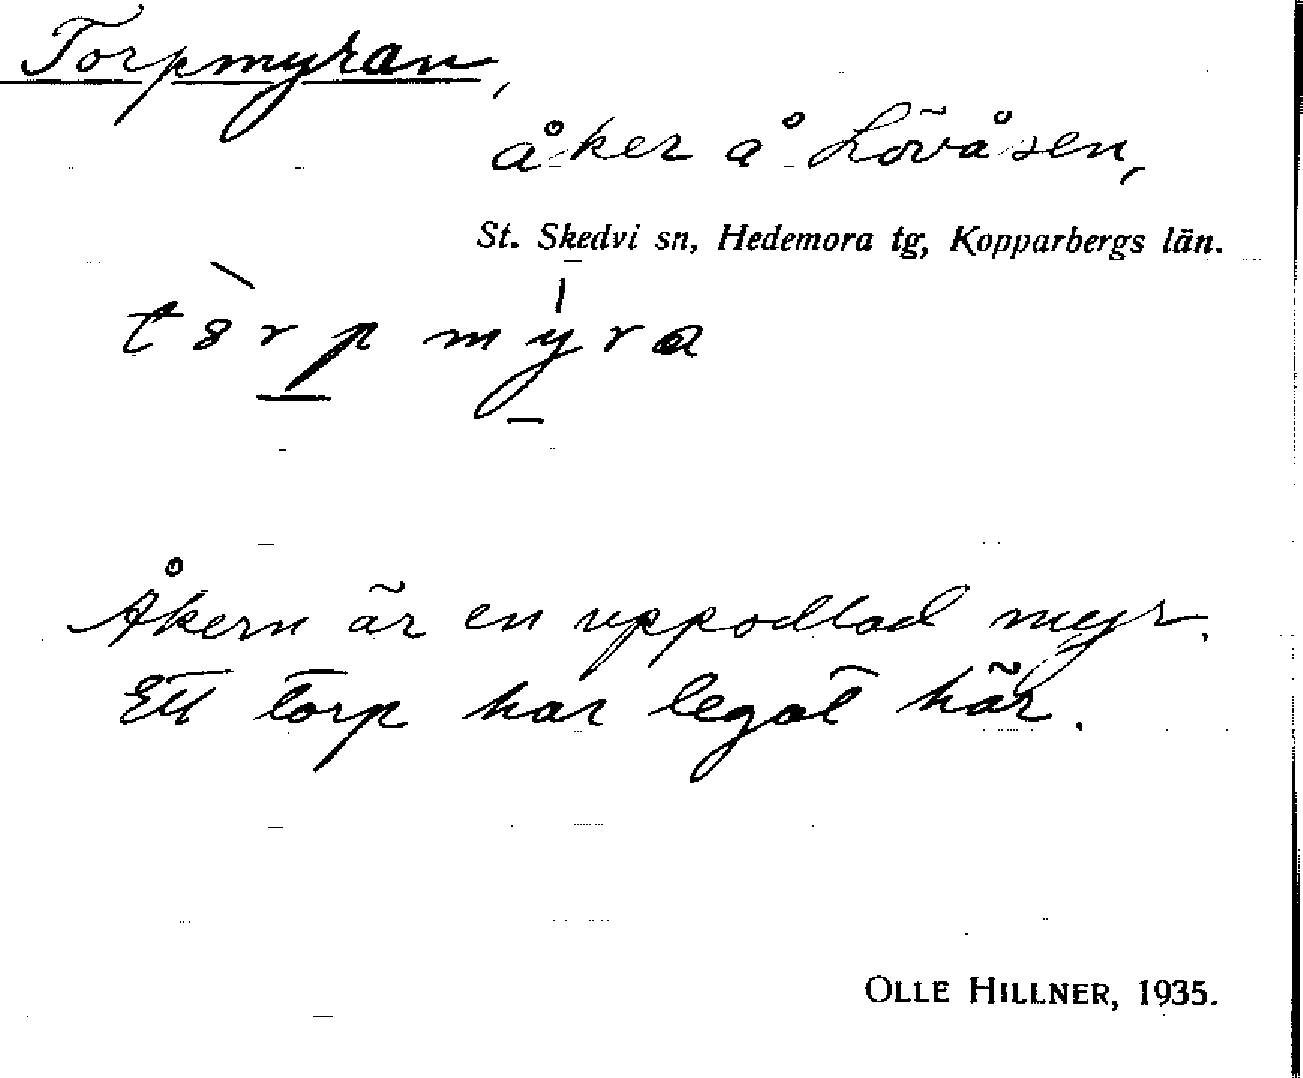 Torpmyran,
åker å Lövåsen,
St. Skedvi sn, Hedemora tg, Kopparbergs län.
Åkern är en uppodlad myr.
Ett torp har legat här.
OLLE HILLNER, 1935.